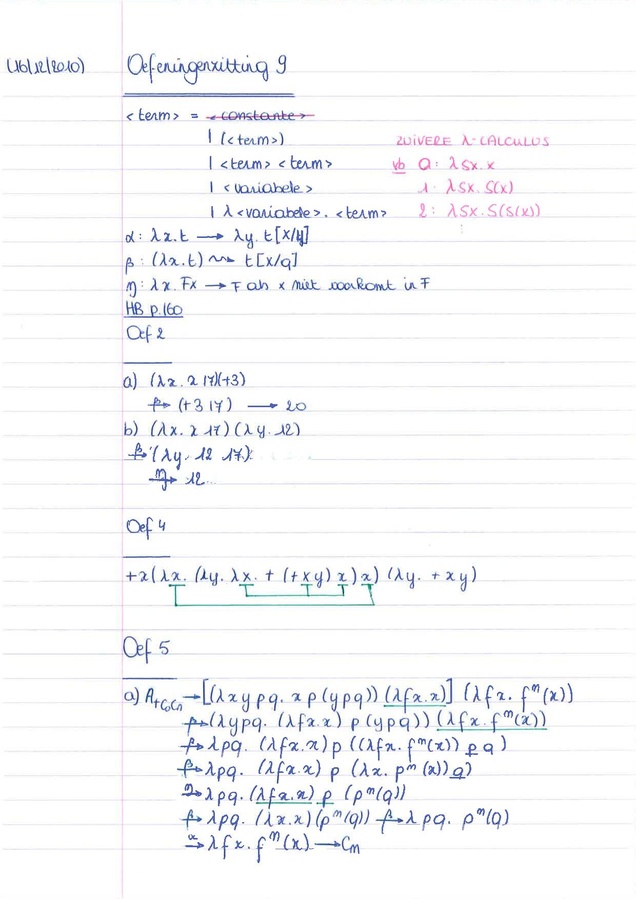 (16/12/2010) Oefeningenzitting 9
<term> = <constante>
| (<term>) ZUIVERE λ-CALCULUS
| <term> <term> vb 0: λsx.x
| <variabele> 1: λsx.s(x)
| λ<variabele>.<term> 2: λsx.s(s(x))
⋮
α: λx.t → λy.t[x/y]
β: (λx.t) ⇝ t[x/a]
η: λx.Fx → F als x niet voorkomt in F
HB p.160
Oef 2
a) (λx. x 17)(+3)
β→ (+3 17) → 20
b) (λx. x 17)(λy. 12)
β→ (λy. 12 17)
η→ 12
Oef 4
+x(λx. (λy. λx. + (+xy) x) x) (λy. + xy)
Oef 5
a) A+C₀Cn → [(λxypq. xp(ypq)) (λfx.x)] (λfx. fᵐ(x))
β→ (λypq. (λfx.x) p (ypq)) (λfx. fᵐ(x))
β→ λpq. (λfx.x) p ((λfx. fᵐ(x)) p q)
β→ λpq. (λfx.x) p (λx. pᵐ(x)) q)
η→ λpq. (λfx.x) p (pᵐ(q))
β→ λpq. (λx.x)(pᵐ(q)) β→ λpq. pᵐ(q)
α→ λfx. fᵐ(x) → Cm